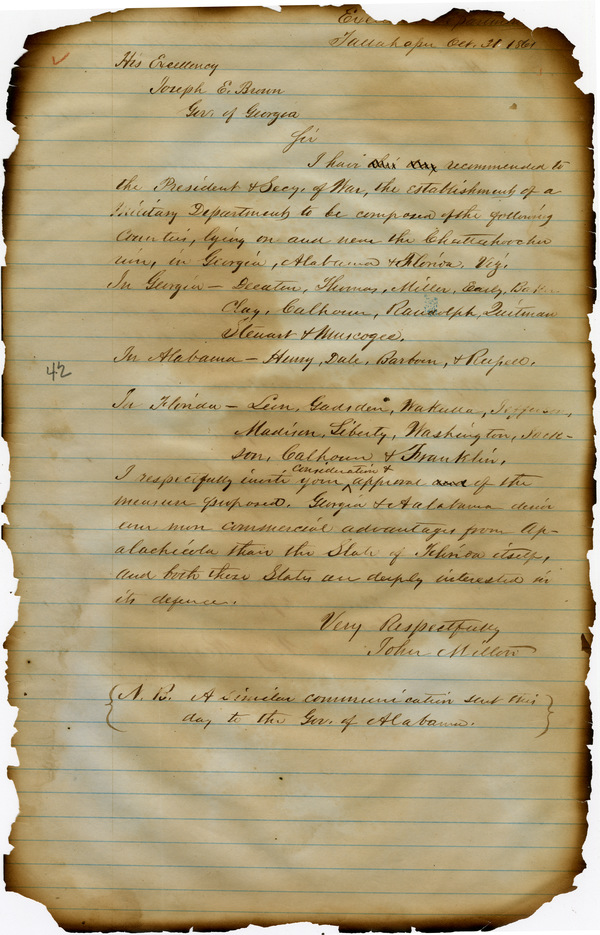 Tallahassee Oct. 31 1861
His Excellency
Joseph E. Brown
Gov. of Georgia
Sir
I have recommended to
the President & Secy. of War, the establishment of a
Military Department to be composed of the following
Counties, lying on and near the Chattahoochee
river, in Georgia, Alabama & Florida. Viz.
In Georgia — Decatur, Thomas, Miller, Early, Baker
Clay, Calhoun, Randolph, Quitman
Steuart & Muscogee.
In Alabama — Henry, Dale, Barbour, & Russell.
42
In Florida — Leon, Gadsden, Wakulla, Jefferson,
Madison, Liberty, Washington, Jack-
son, Calhoun & Franklin.
I respectfully invite your consideration & approval of the
measure proposed. Georgia & Aalabama deriv
ever more commercial advantages from Ap-
alachicola than the State of Florida itself,
and both these States are deeply interested in
its defence.
Very Respectfully
John Milton
(N. B. A similar communication sent this
day to the Gov. of Alabama.)